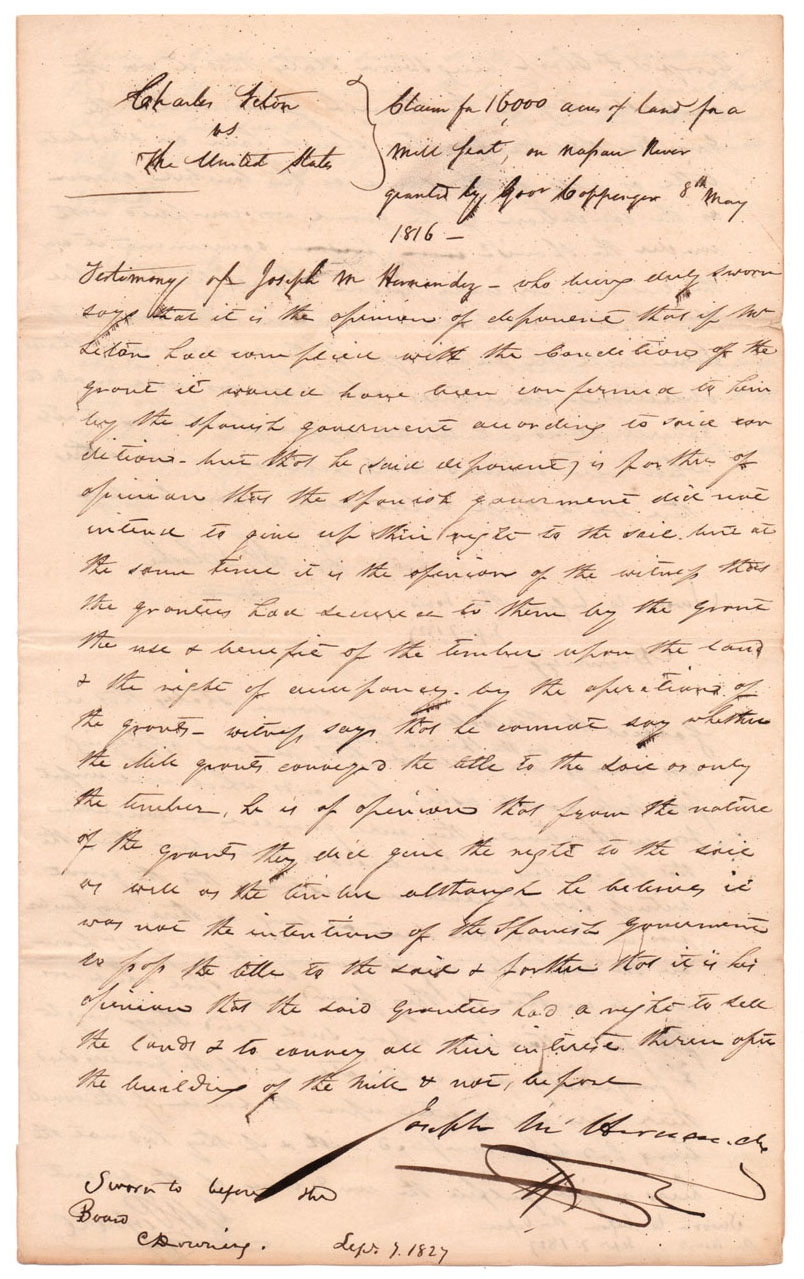 Charles Seton
vs
The United States
Claim for 16,000 acres of land for a
Mill Seat, on Nassau River
granted by Govr Coppinger 8th May
1816 —
Testimony of Joseph M Hernandez — who being duly sworn
says that it is the opinion of deponent that if Mr
Seton had complied with the Condition of the
grant it would have been confirmed to him
by the Spanish goverment according to said con
dition - but that he (said deponent) is further of
opinion that the Spanish goverment did not
intend to give up their right to the soil but at
the same time it is the opinion of the witness that
the grantees had secured to them by the grant
the use & benefit of the timber upon the land
& the right of occupancy. by the operation of
the grants — witness says that he cannot say whether
the Mill grants conveyed the title to the soil or only
the timber, he is of opinion that from the nature
of the grants they did give the right to the soil
as well as the timber although he believes it
was not the intention of the Spanish Goverment
to pass the title to the soil & further that it is his
opinion that the said Grantees had a right to sell
the lands & to convey all their interest therein after
the building of the Mill & not, before
Joseph M Hernandez
Sworn to before the
Board
CDowning.
Sepr 7. 1827